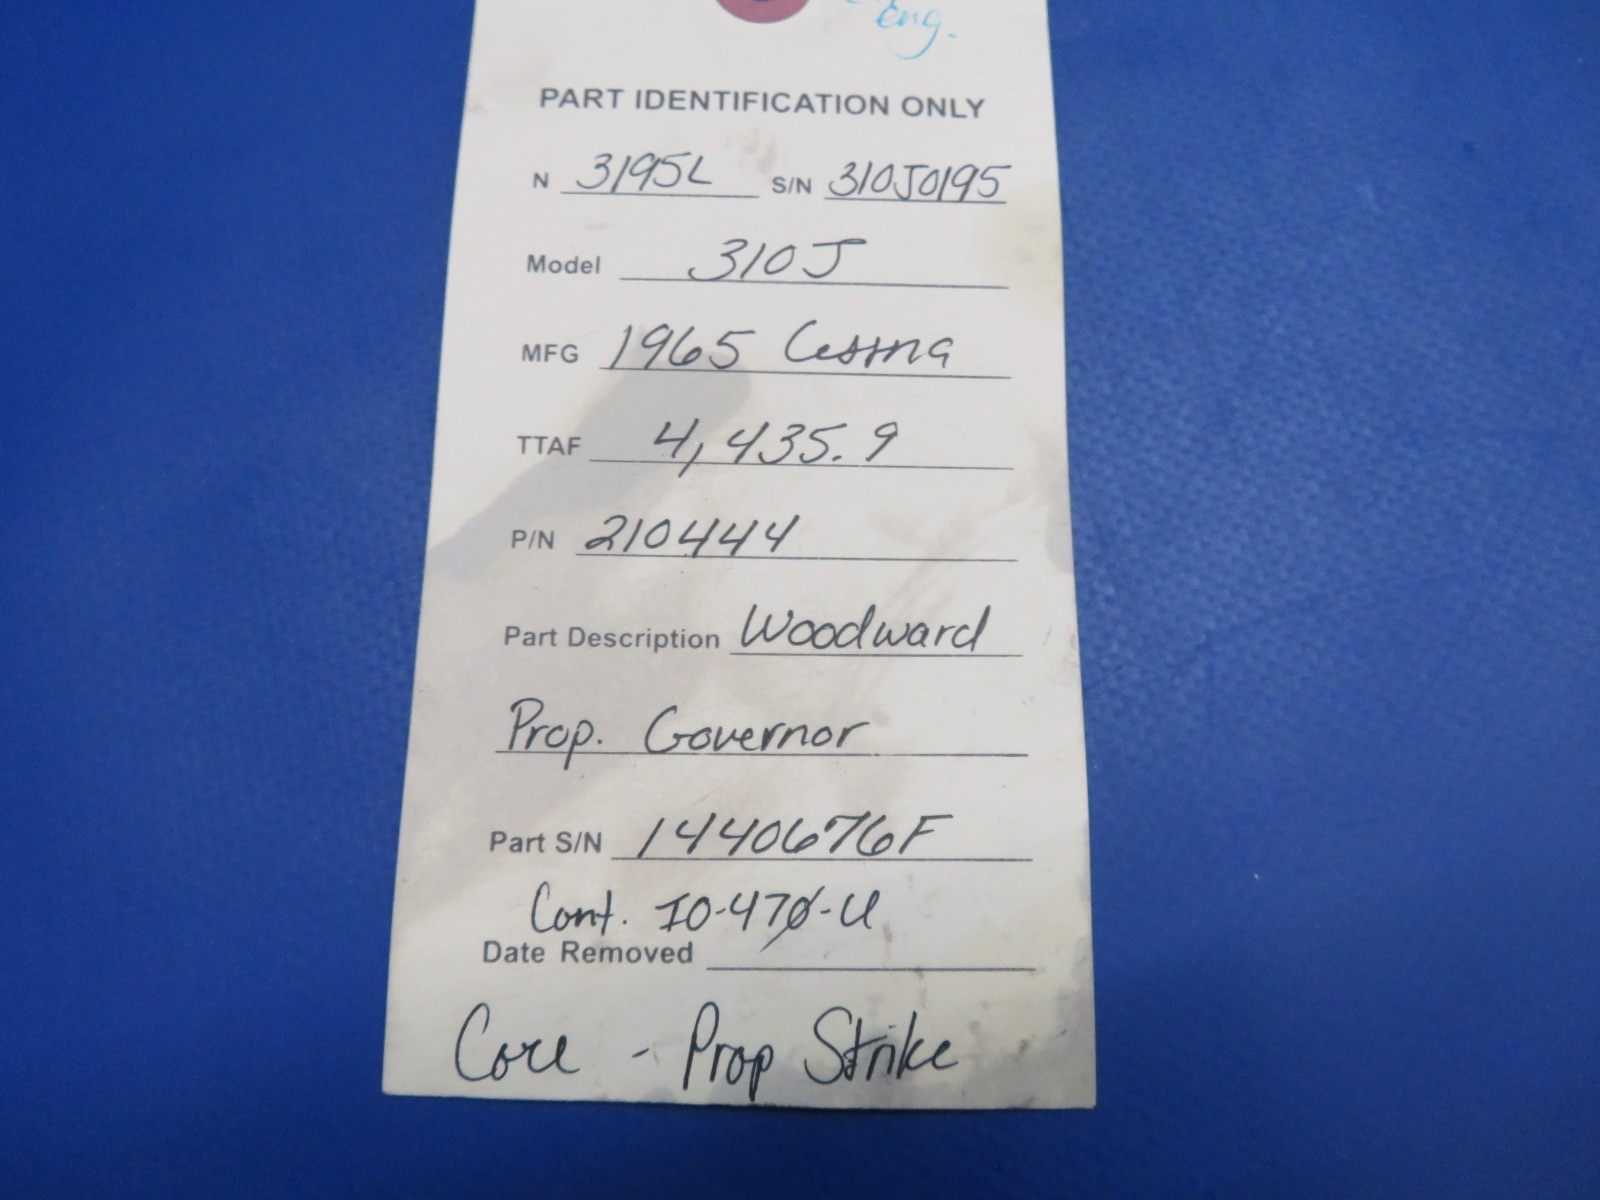 Eng.
PART IDENTIFICATION ONLY
N 3195L S/N 310J0195
Model 310J
MFG 1965 Cessna
TTAF 4,435.9
P/N 210444
Part Description Woodward
Prop. Governor
Part S/N 1440676F
Cont. IO-470-U
Date Removed
Core - Prop Strike